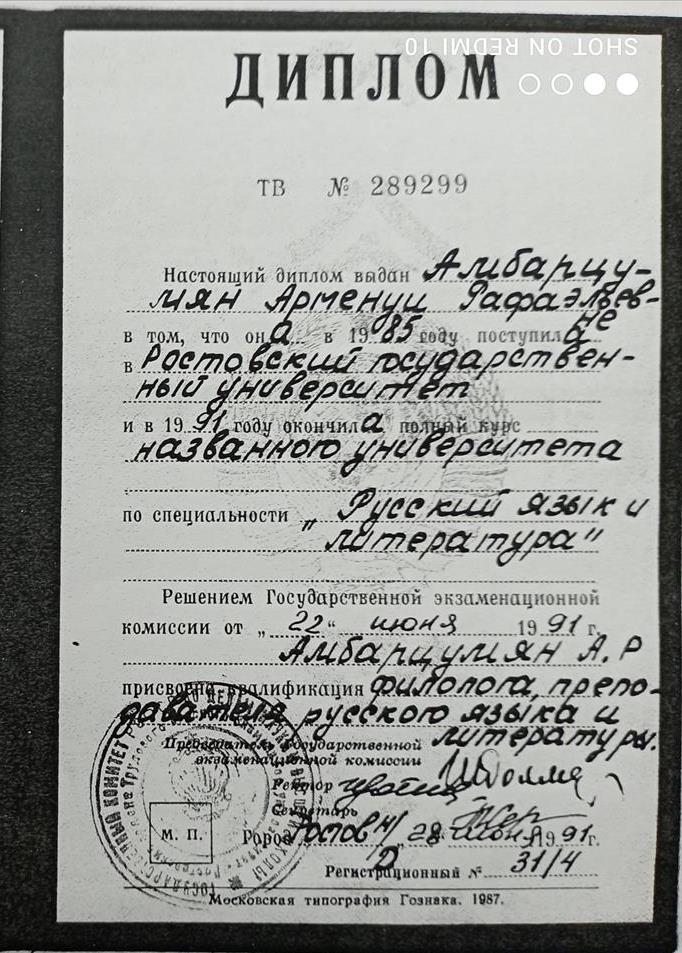 SHOT ON REDMI 10
ДИПЛОМ
ТВ № 289299
Настоящий диплом выдан Амбарцу-
мян Арменуи Рафаэльев-
не
в том, что она в 1985 году поступила
в Ростовский государствен-
ный университет
и в 1991 году окончила полный курс
названного университета
по специальности „Русский язык и
литература"
Решением Государственной экзаменационной
комиссии от „22" июня 1991 г.
Амбарцумян А.Р
присвоена квалификация филолога, препо-
давателя русского языка и
литературы.
Председатель Государственной
экзаменационной комиссии
Ректор
Секретарь
М. П.
Город Ростов н/Д „28" июня 1991г.
Регистрационный № 31/4
Московская типография Гознака. 1987.
ГОСУДАРСТВЕННЫЙ КОМИТЕТ